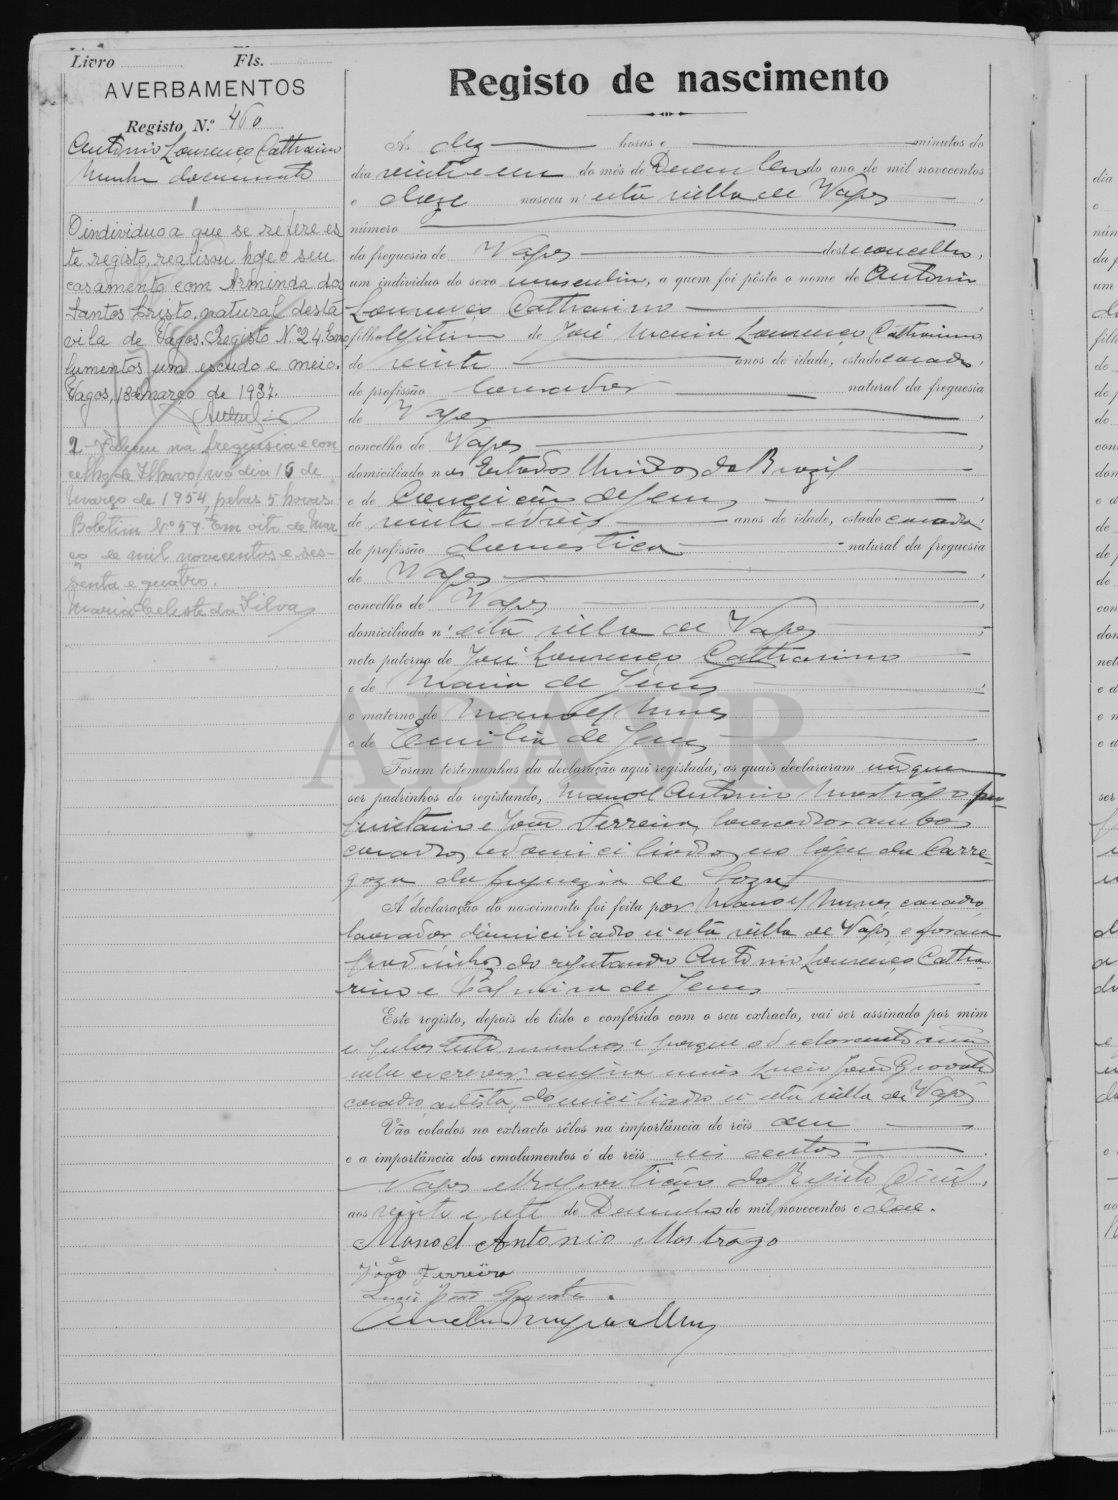 Livro Fls.
AVERBAMENTOS
Registo N.º 460
António Lourenço Cathrarino
Nenhum documento
1
O individuo a que se refere es
te registo, realisou hoje o seu
casamento com Arminda dos
Santos Cristo, natural desta
vila de Vagos. Registo Nº 24. Emo
lumentos um escudo e meio.
Vagos, 18 de março de 1937.
2 - Faleceu na freguesia e con
celho de Ilhavo no dia 16 de
Março de 1954, pelas 5 horas.
Boletim Nº 59. Em oito de Mar
ço de mil novecentos e ses-
senta e quatro.
Maria Celeste da Silva
Registo de nascimento
Ás dez horas e minutos do
dia vinte e um do mês de Dezembro do ano de mil novecentos
e doze nasceu n'esta villa de Vagos
número
da freguesia de Vagos deste concelho,
um individuo do sexo masculino, a quem foi pôsto o nome de Antonio
Lourenço Cathrarino
filho legitimo de José Maria Lourenço Cathrarino
de vinte anos de idade, estado casado,
de profissão lavrador natural da freguesia
de Vagos,
concelho de Vagos,
domiciliado nos Estados Unidos do Brazil
e de Conceição de Jesus,
de vinte e dois anos de idade, estado casada,
de profissão domestica natural da freguesia
de Vagos,
concelho de Vagos
domiciliado n'esta villa de Vagos;
neto paterno de José Lourenço Cathrarino
e de Maria de Jesus,
e materno de Manoel Nunes
e de Emilia de Jesus
Foram testemunhas da declaração aqui registada, as quais declararam não quer
ser padrinhos do registando, Manoel Antonio Mostrago pro
prietario e João Ferreira, lavrador ambos
casados, e domiciliados no lugar da Carre-
goza da freguezia de Soza
A declaração do nascimento foi feita por Manoel Nunes, casado
lavrador domiciliado n'esta villa de Vagos, e foram
padrinhos do registando Antonio Lourenço Cathra-
rino e Palmira de Jesus
Este registo, depois de lido e conferido com o seu extracto, vai ser assinado por mim
e pelas testemunhas e porque o declarante não
sabe escrever, assigna Lucio João Gravato
casado, artista, domiciliado n'esta villa de Vagos
Vão colados no extracto sêlos na importância de réis cem
e a importância dos emolumentos é de réis seis centos
Vagos e Repartição do Registo Civil,
aos vinte e sete de Dezembro de mil novecentos e doze.
Manoel Antonio Mostrago
João Ferreira
Lucio João Gravato
ADAVR